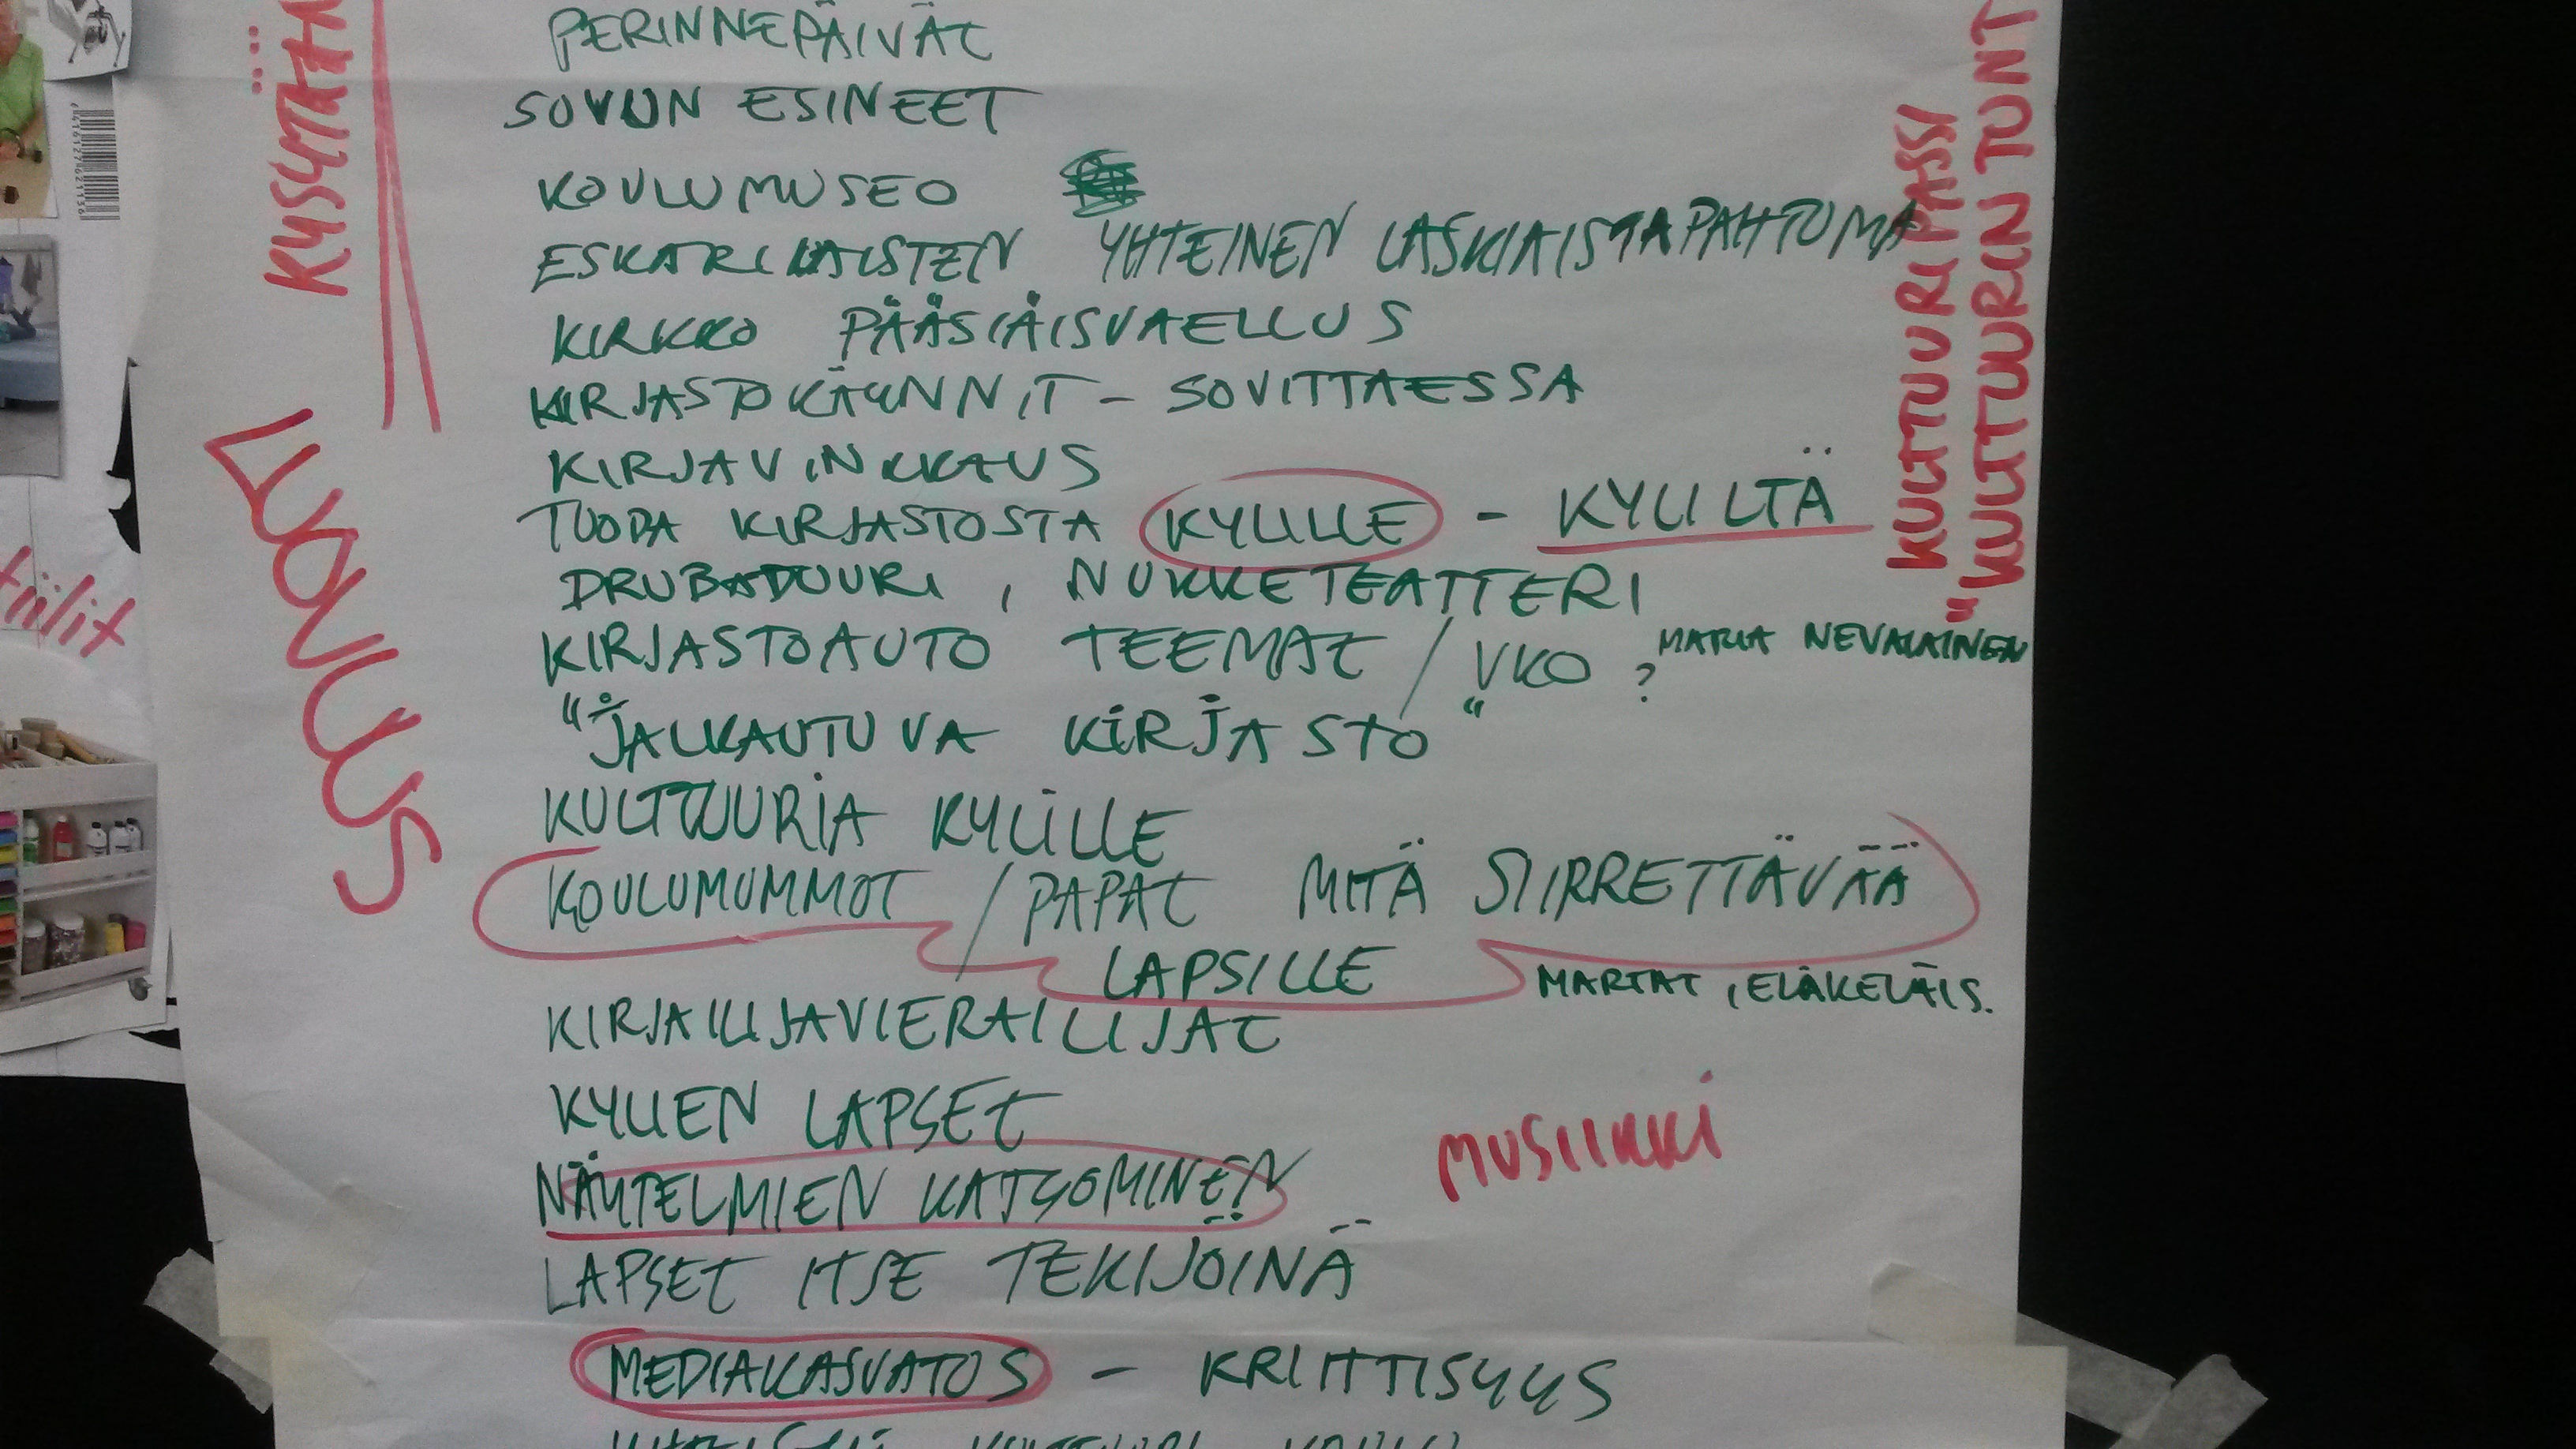 PERINNEPÄIVÄT
SUVUN ESINEET
KOULUMUSEO
ESKARILAISTEN YHTEINEN LASKIAISTAPAHTUMA
KIRKKO PÄÄSIÄISVAELLUS
KIRJASTOKÄYNNIT - SOVITTAESSA
KIRJAVINKKAUS
TUODA KIRJASTOSTA KYLILLE - KYLILTÄ
DRUBADUURI, NUKKETEATTERI
KIRJASTOAUTO TEEMAT / VKO ? MARIA NEVALAINEN
"JALKAUTUVA KIRJASTO"
KULTTUURIA KYLILLE
KOULUMUMMOT / PAPAT MITÄ SIIRRETTÄVÄÄ
LAPSILLE MARTAT, ELÄKELÄIS.
KIRJAILIJAVIERAILIJAT
KYLIEN LAPSET
MUSIIKKI
NÄYTELMIEN KATSOMINEN
LAPSET ITSE TEKIJÖINÄ
MEDIAKASVATUS - KRIITTISYYS
KYSYTÄÄN
LUOVUUS
KULTTUURIPASSI
"KULTTUURIN TUNT
tiilit